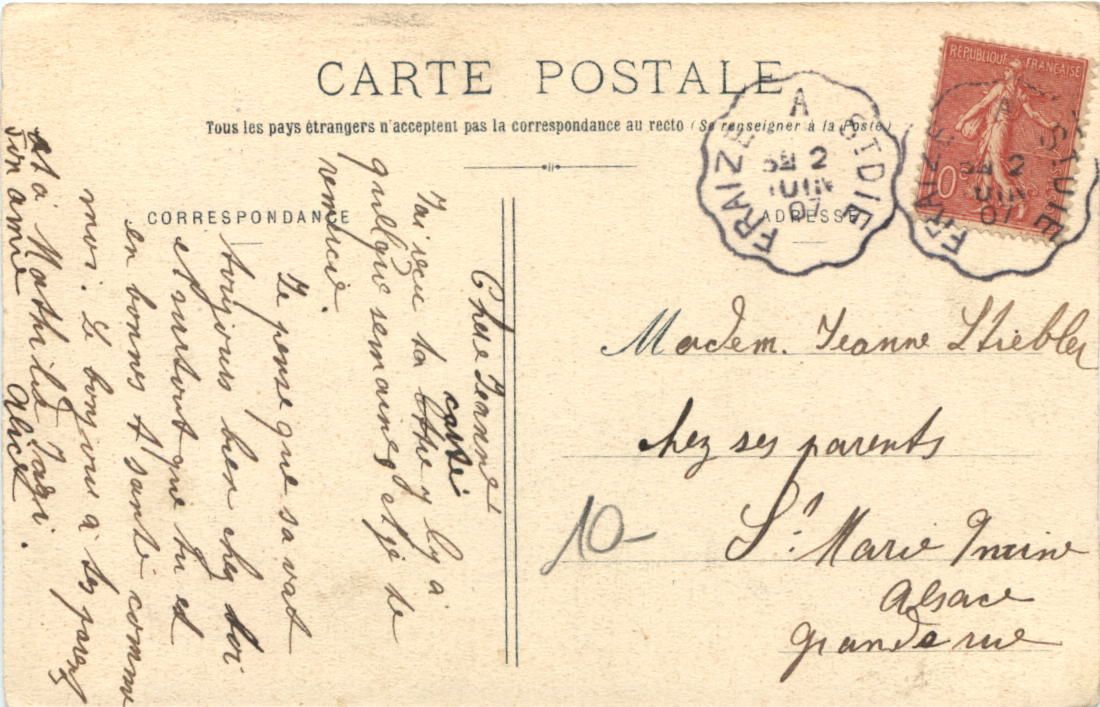 CARTE POSTALE
Tous les pays étrangers n'acceptent pas la correspondance au recto (Se renseigner à la Poste)
CORRESPONDANCE
ADRESSE
REPUBLIQUE FRANÇAISE
10 c
FRAIZE A ST DIE
2
JUIN
07
FRAIZE A ST DIE
2
JUIN
07
Chere Jeanne
J'ai reçu ta carte il y a
quelque semaines et je te
remercie.
Je pense que sa vat
toujours bien chez toi
et surtout que tu est
en bonnes t' santé comme
moi. Le bonjour a tes parents
et à Mathilde
Ton amie Alice
Madem. Jeanne Stiebler
chez ses parents
St. Marie
Alsace
Grande rue
10-